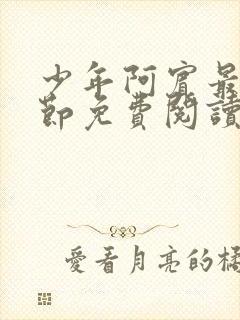 少年阿賓最
節免費閱讀
愛看月亮的橘